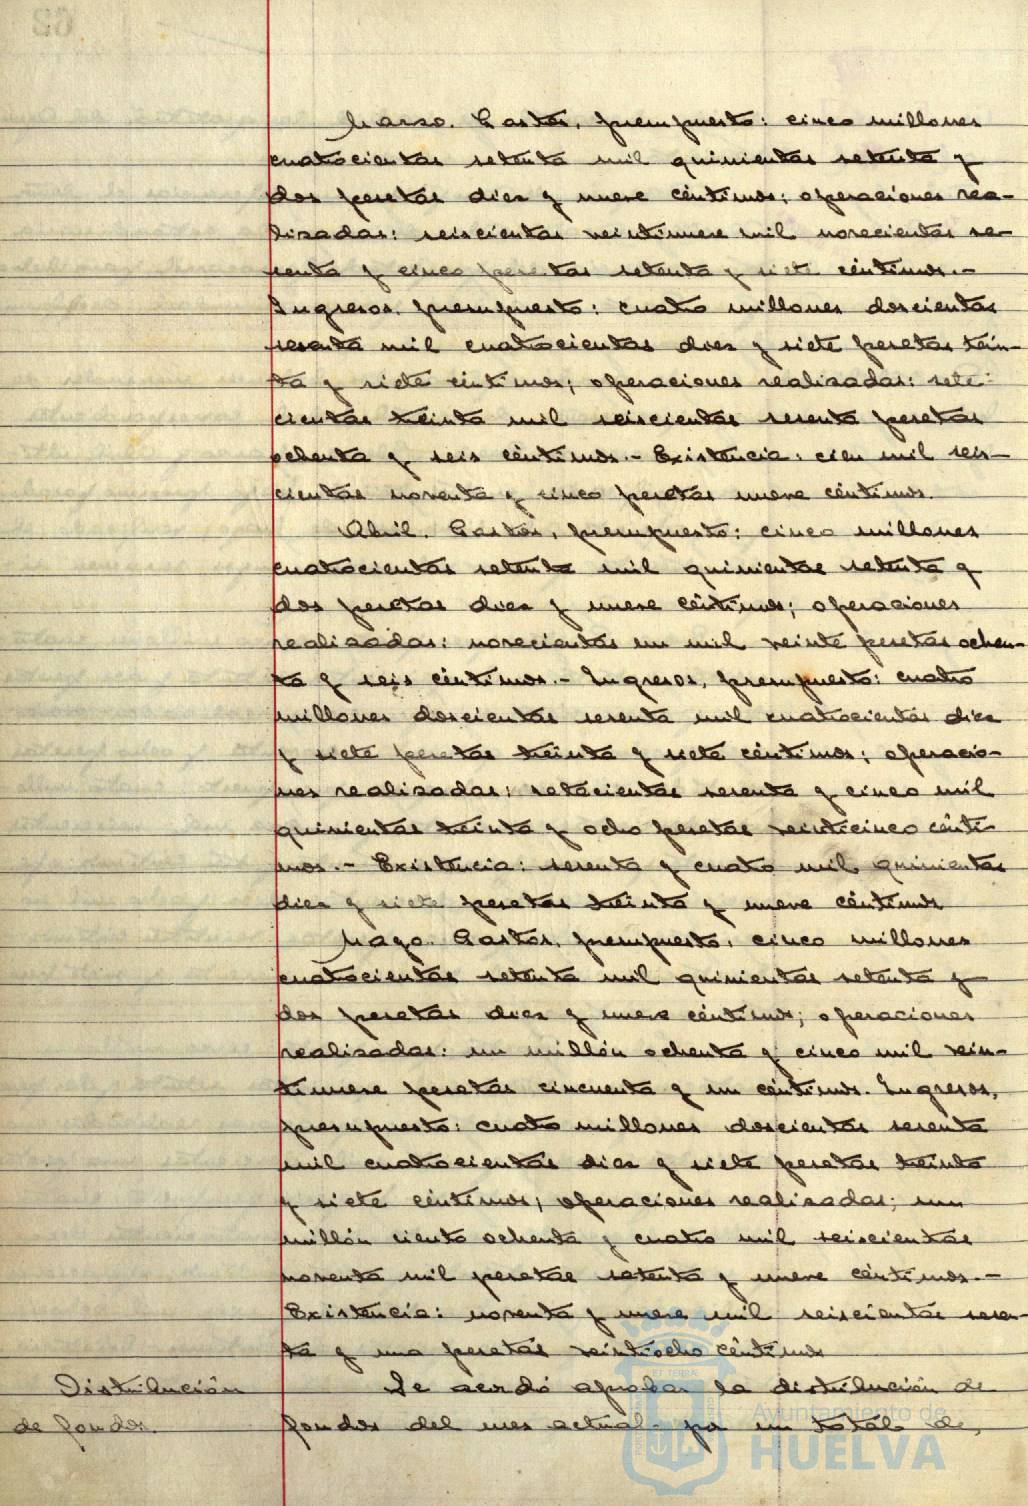 Marzo. Gastos, presupuesto: cinco millones
cuatrocientas setenta mil quinientas setenta y
dos pesetas diez y nueve céntimos; operaciones rea-
lizadas: seiscientas veintinueve mil novecientas se-
tenta y cinco pesetas setenta y siete céntimos.-
Ingresos, presupuesto: cuatro millones doscientas
sesenta mil cuatrocientas diez y siete pesetas trein-
ta y siete céntimos; operaciones realizadas: sete-
cientas treinta mil seiscientas sesenta pesetas
ochenta y seis céntimos.- Existencia: cien mil seis-
cientas noventa y cinco pesetas nueve céntimos.
Abril. Gastos, presupuesto: cinco millones
cuatrocientas setenta mil quinientas setenta y
dos pesetas diez y nueve céntimos; operaciones
realizadas: novecientas un mil veinte pesetas ochen-
ta y seis céntimos.- Ingresos, presupuesto: cuatro
millones doscientas sesenta mil cuatrocientas diez
y siete pesetas treinta y siete céntimos; operacio-
nes realizadas: setecientas sesenta y cinco mil
quinientas treinta y ocho pesetas veinticinco cénti-
mos.- Existencia: sesenta y cuatro mil quinientas
diez y siete pesetas treinta y nueve céntimos
Mayo. Gastos, presupuesto: cinco millones
cuatrocientas setenta mil quinientas setenta y
dos pesetas diez y nueve céntimos; operaciones
realizadas: un millón ochenta y cinco mil vein-
tinueve pesetas cincuenta y un céntimos. Ingresos,
presupuesto: cuatro millones doscientas sesenta
mil cuatrocientas diez y siete pesetas treinta
y siete céntimos; operaciones realizadas: un
millón ciento ochenta y cuatro mil seiscientas
noventa mil pesetas setenta y nueve céntimos.-
Existencia: noventa y nueve mil seiscientas sesen-
ta y una pesetas veintiocho céntimos
Distribución
de fondos.
Se acordó aprobar la distribución de
fondos del mes actual por un total de,
Ayuntamiento de
HUELVA